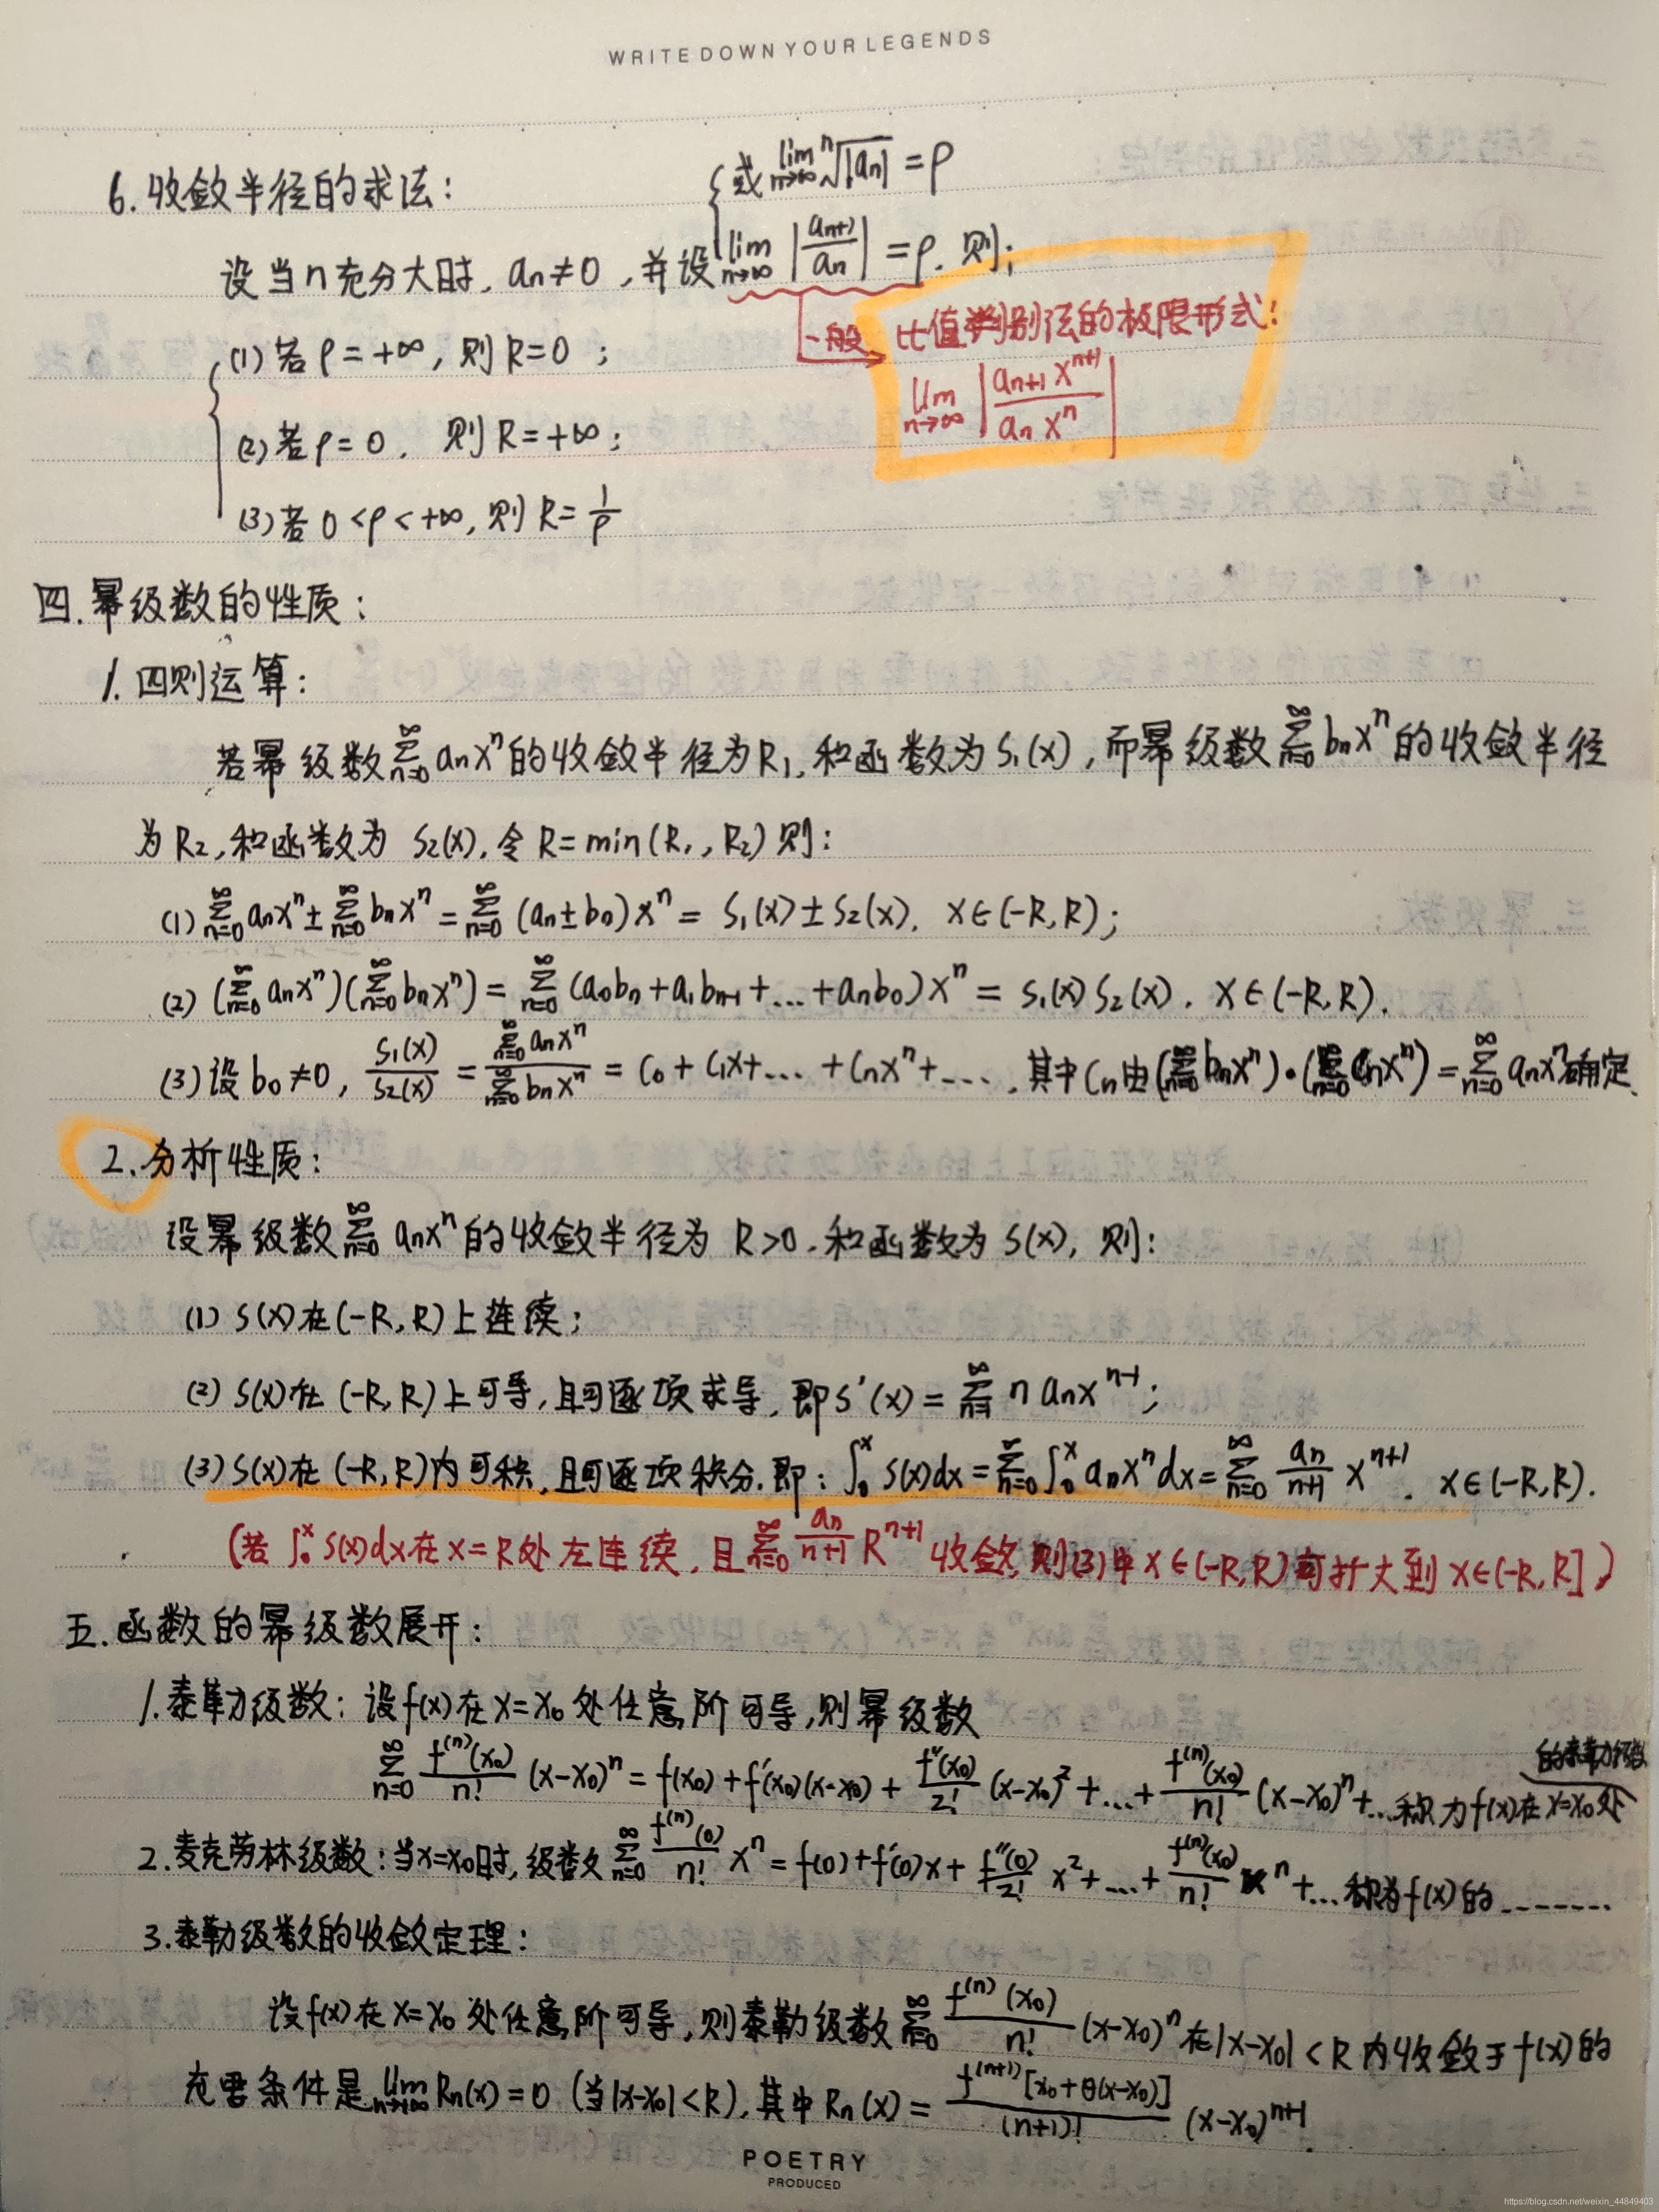 WRITE DOWN YOUR LEGENDS
6. 收敛半径的求法:
{或 lim n→∞ ⁿ√|an| = ρ
设当n充分大时, an≠0, 并设 lim n→∞ |an+1/an| = ρ. 则;
一般 比值判别法的极限形式!
lim n→∞ |an+1 x^(n+1) / an x^n|
(1) 若 ρ=+∞, 则 R=0;
(2) 若 ρ=0, 则 R=+∞;
(3) 若 0<ρ<+∞, 则 R=1/ρ
四. 幂级数的性质:
1. 四则运算:
若幂级数 ∞∑n=0 an x^n 的收敛半径为R1, 和函数为 S1(x), 而幂级数 ∞∑n=0 bn x^n 的收敛半径
为 R2, 和函数为 S2(x), 令 R=min(R1, R2) 则:
(1) ∞∑n=0 an x^n ± ∞∑n=0 bn x^n = ∞∑n=0 (an±bn) x^n = S1(x)±S2(x), x∈(-R,R);
(2) (∞∑n=0 an x^n)(∞∑n=0 bn x^n) = ∞∑n=0 (a0bn+a1bn-1+...+anb0) x^n = S1(x) S2(x). x∈(-R,R).
(3) 设 b0≠0, S1(x)/S2(x) = ∞∑n=0 an x^n / ∞∑n=0 bn x^n = C0+C1x+...+Cnx^n+..., 其中Cn由(∞∑n=0 bn x^n)·(∞∑n=0 Cn x^n) = ∞∑n=0 an x^n 确定.
2. 分析性质:
设幂级数 ∞∑n=0 an x^n 的收敛半径为 R>0. 和函数为 S(x), 则:
(1) S(x)在(-R,R)上连续;
(2) S(x)在(-R,R)上可导, 且可逐项求导, 即S'(x) = ∞∑n=1 n an x^(n-1);
(3) S(x)在(-R,R)内可积, 且可逐项积分. 即: ∫0^x S(x)dx = ∞∑n=0 ∫0^x an x^n dx = ∞∑n=0 an/(n+1) x^(n+1). x∈(-R,R).
(若 ∫0^x S(x)dx在x=R处左连续, 且 ∞∑n=0 an/(n+1) R^(n+1) 收敛, 则(3)中 x∈(-R,R)可扩大到 x∈(-R,R])
五. 函数的幂级数展开:
1. 泰勒级数: 设f(x)在x=x0处任意阶可导, 则幂级数
∞∑n=0 f^(n)(x0)/n! (x-x0)^n = f(x0)+f'(x0)(x-x0)+ f''(x0)/2! (x-x0)^2+...+ f^(n)(x0)/n! (x-x0)^n+... 称为f(x)在x=x0处
的泰勒级数
2. 麦克劳林级数: 当x=x0时, 级数 ∞∑n=0 f^(n)(0)/n! x^n = f(0)+f'(0)x+ f''(0)/2! x^2+...+ f^(n)(x0)/n! x^n+... 称为f(x)的--------
3. 泰勒级数的收敛定理:
设f(x)在x=x0处任意阶可导, 则泰勒级数 ∞∑n=0 f^(n)(x0)/n! (x-x0)^n 在|x-x0|<R内收敛于f(x)的
充要条件是 lim n→∞ Rn(x)=0 (当|x-x0|<R), 其中 Rn(x) = f^(n+1)[x0+θ(x-x0)]/(n+1)! (x-x0)^(n+1).
POETRY
PRODUCED
https://blog.csdn.net/weixin_44849403